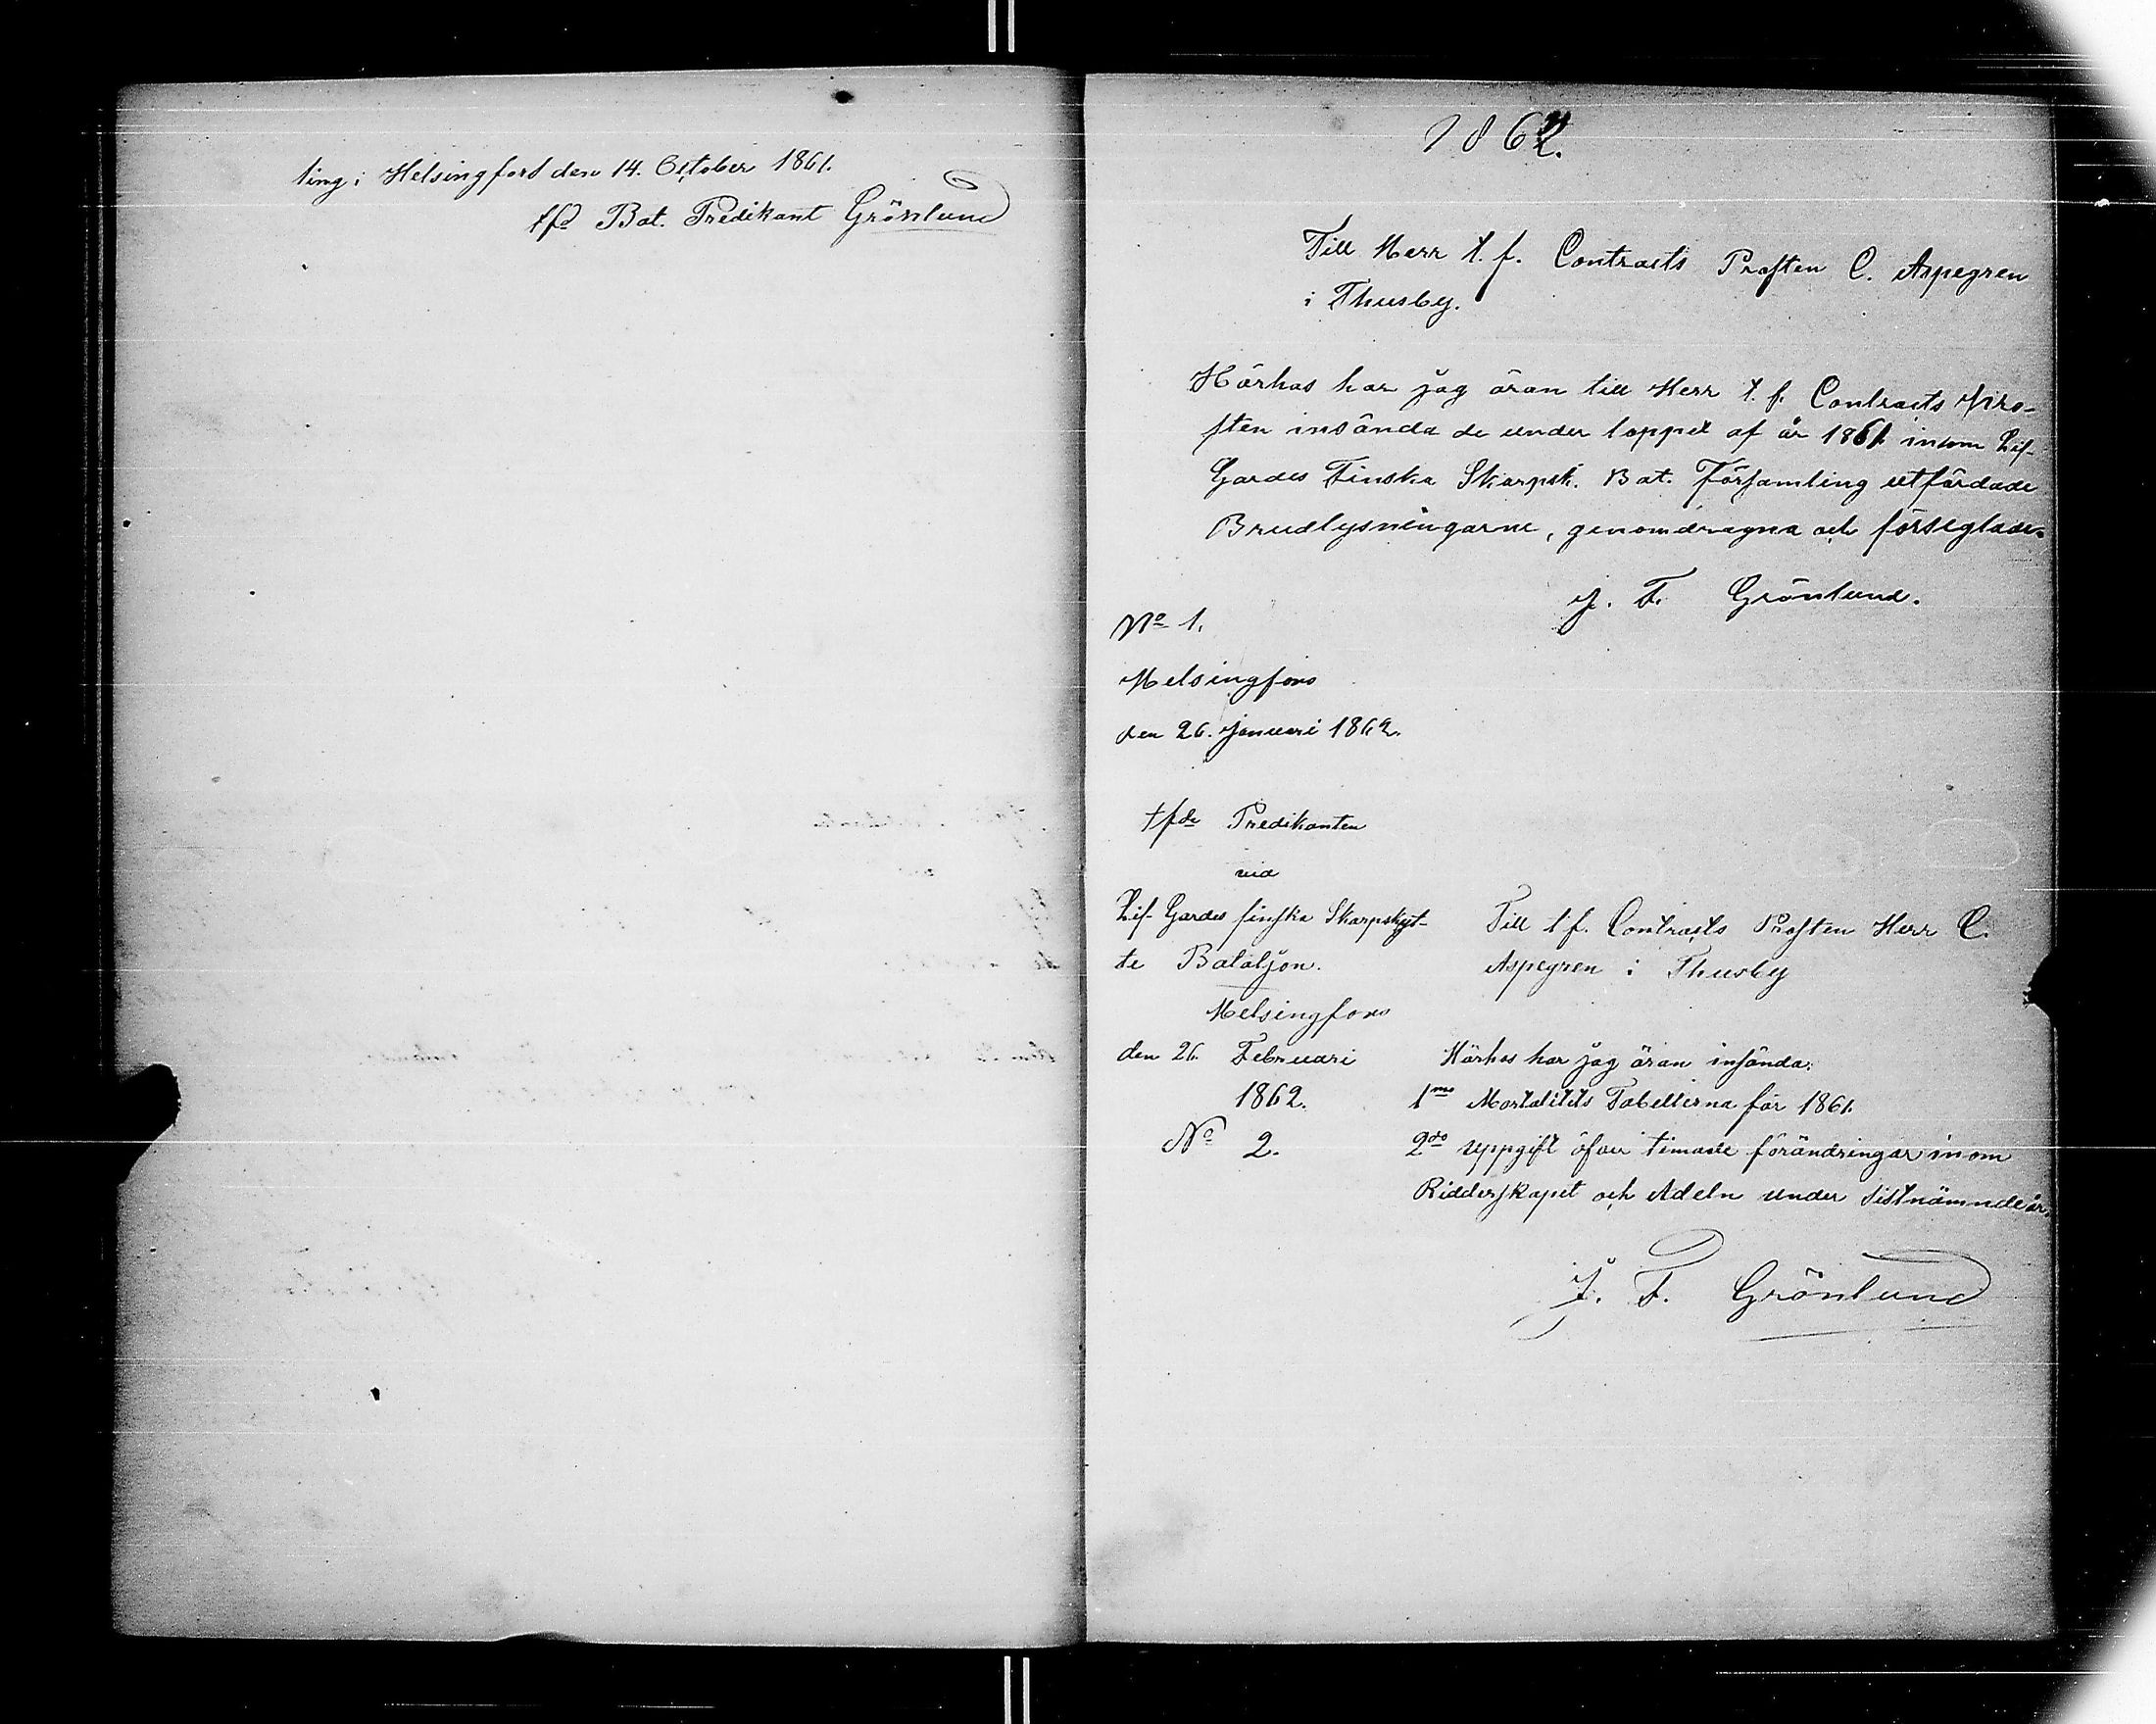 ling i Helsingfors den 14. October 1861.
tfd Bat. Predikant Grönlund
1862.
Till Herr t. f. Contracts Prosten C. Aspegren
i Thusby.
Härhos har jag äran till Herr t. f. Contracts Pro-
sten insända de under loppet af år 1861 inom Lif-
Gardes Finska Skarpsk. Bat. Församling utfärdade
Brudlysningarne, genomdragna och förseglade.
J. F. Grönlund.
No 1.
Helsingfors
den 26. Januari 1862.
tfde Predikanten
vid
Lif-Gardes finska Skarpskyt-
te Bataljon.
Helsingfors
den 26. Februari
1862.
No 2.
Till t f. Contracts Prosten Herr C.
Aspegren i Thusby
Härhos har jag äran insända:
1mo Mortalitets Tabellerna för 1861.
2do uppgift öfver timade förändringar inom
Ridderskapet och Adeln under sistnämnde år.
J. F. Grönlund